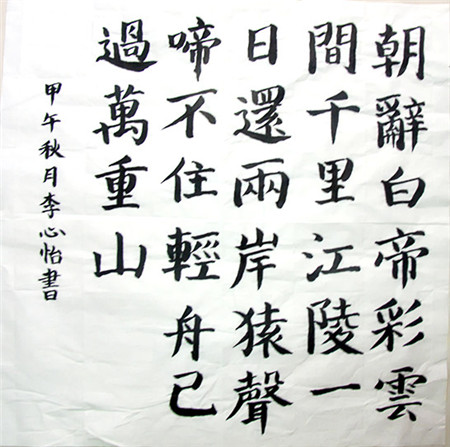 朝辭白帝彩雲
間千里江陵一
日還兩岸猿聲
啼不住輕舟已
過萬重山
甲午秋月李心怡書